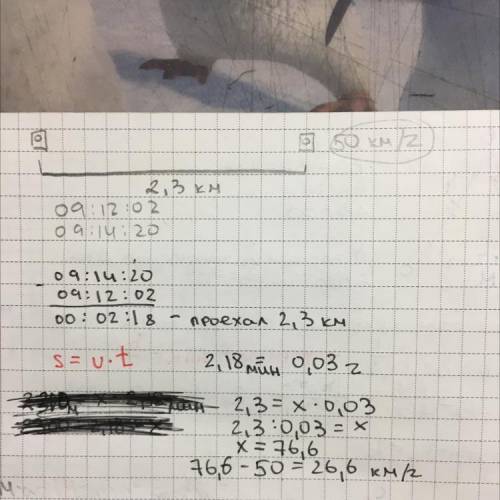 50 км/г
2,3 км
09:12:02
09:14:20
- 09:14:20
09:12:02
00:02:18 - проехал 2,3 км
s = v·t
2,18 мин = 0,03 г
2,3 = x · 0,03
2,3 : 0,03 = x
x = 76,6
76,6 - 50 = 26,6 км/г